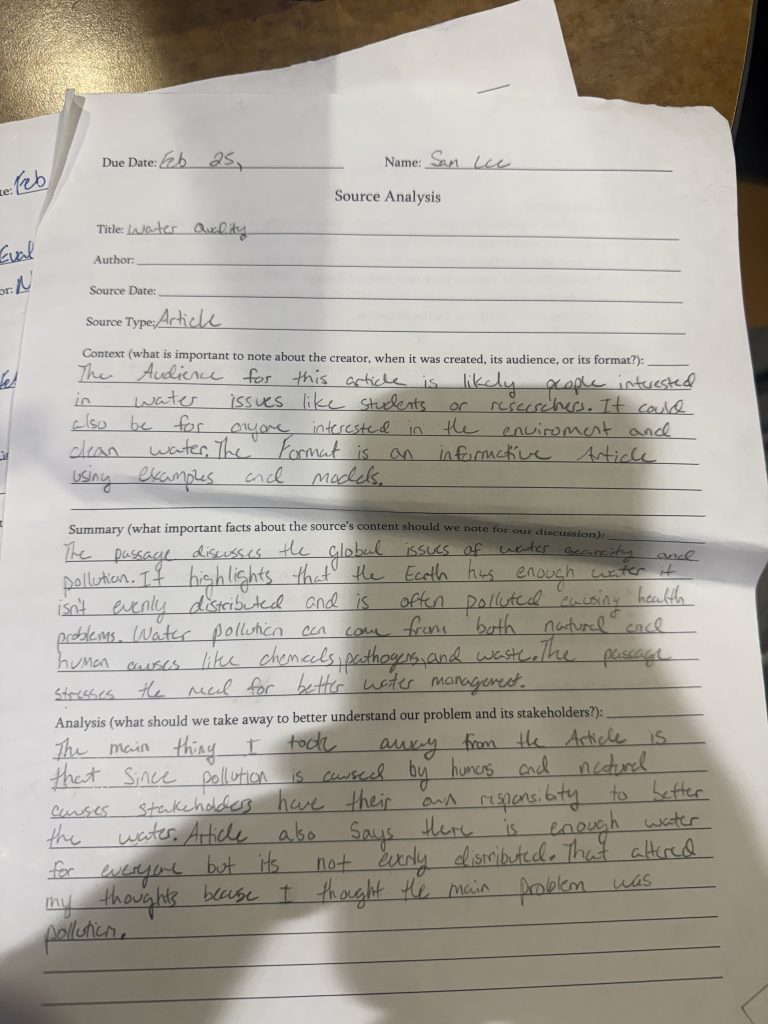 Due Date: Feb 25, Name: San Lee
Source Analysis
Title: Water Quality
Author:
Source Date:
Source Type: Article
Context (what is important to note about the creator, when it was created, its audience, or its format?):
The Audience for this article is likely people interested
in water issues like students or researchers. It could
also be for anyone interested in the enviroment and
clean water. The Format is an informative Article
using examples and models.
Summary (what important facts about the source's content should we note for our discussion):
The passage discusses the global issues of water scarcity and
pollution. It highlights that the Earth has enough water it
isn't evenly distributed and is often polluted causing health
problems. Water pollution can come from both natural and
human causes like chemicals, pathogens, and waste. The passage
stresses the need for better water management.
Analysis (what should we take away to better understand our problem and its stakeholders?):
The main thing I took away from the Article is
that Since pollution is caused by humans and natural
causes stakeholders have their own responsibity to better
the water. Article also Says there is enough water
for everyone but its not evenly distributed. That altered
my thoughts becuse I thought the main problem was
pollution.
te: Feb
Eval
or: N